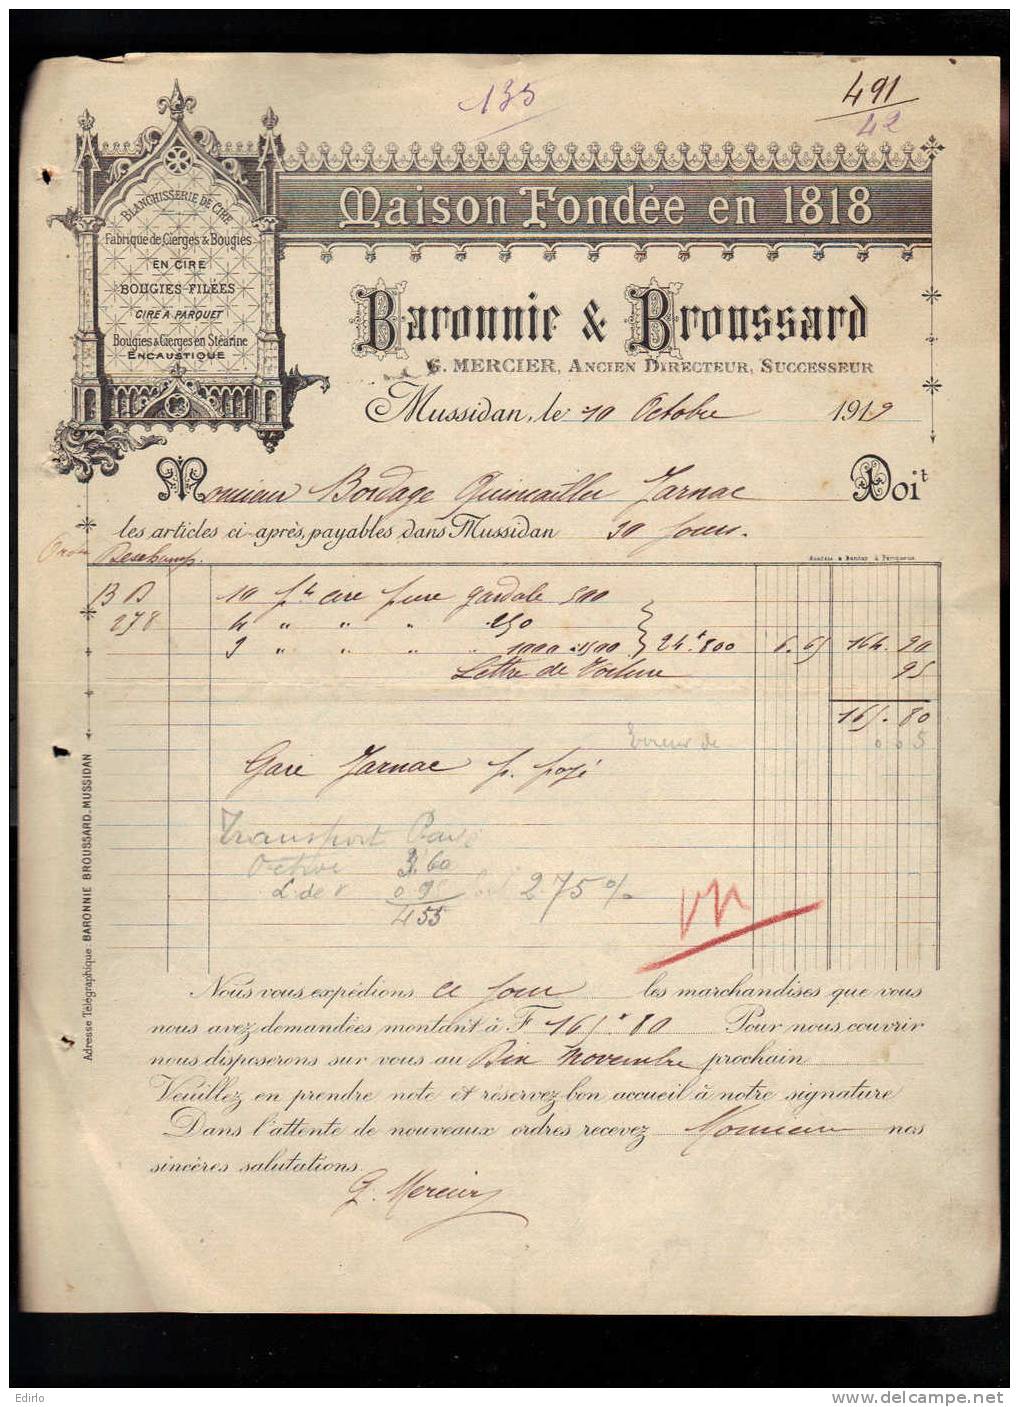 135
491
42
BLANCHISSERIE DE CIRE
Fabrique de Cierges & Bougies
EN CIRE
BOUGIES FILÉES
CIRE A PARQUET
Bougies & Cierges en Stéarine
ENCAUSTIQUE
Maison Fondée en 1818
Baronnie & Broussard
G. MERCIER, ANCIEN DIRECTEUR, SUCCESSEUR
Mussidan, le 10 Octobre 1919
Monsieur Bordage Quincailler Jarnac Doit
les articles ci-après, payables dans Mussidan 30 jours.
Deschamp.
B B 10 pts cire pure 500
278 4 " " " 250
" " " " 1000 24k800 6.65 164.90
Lettre de Voiture 95
165.80
Erreur de 0 05
Gare Jarnac p. payé
Transport Payé
3.60
L. de V 0.95 2.75 %
4 55
Adresse Télégraphique: BARONNIE BROUSSARD_MUSSIDAN
Nous vous expédions ce jour les marchandises que vous
nous avez demandées montant à F 165f 80 Pour nous couvrir
nous disposerons sur vous au Dix Novembre prochain
Veuillez en prendre note et réservez bon accueil à notre signature
Dans l'attente de nouveaux ordres recevez Monsieur nos
sincères salutations.
G. Mercier
Edirlo
www.delcampe.net